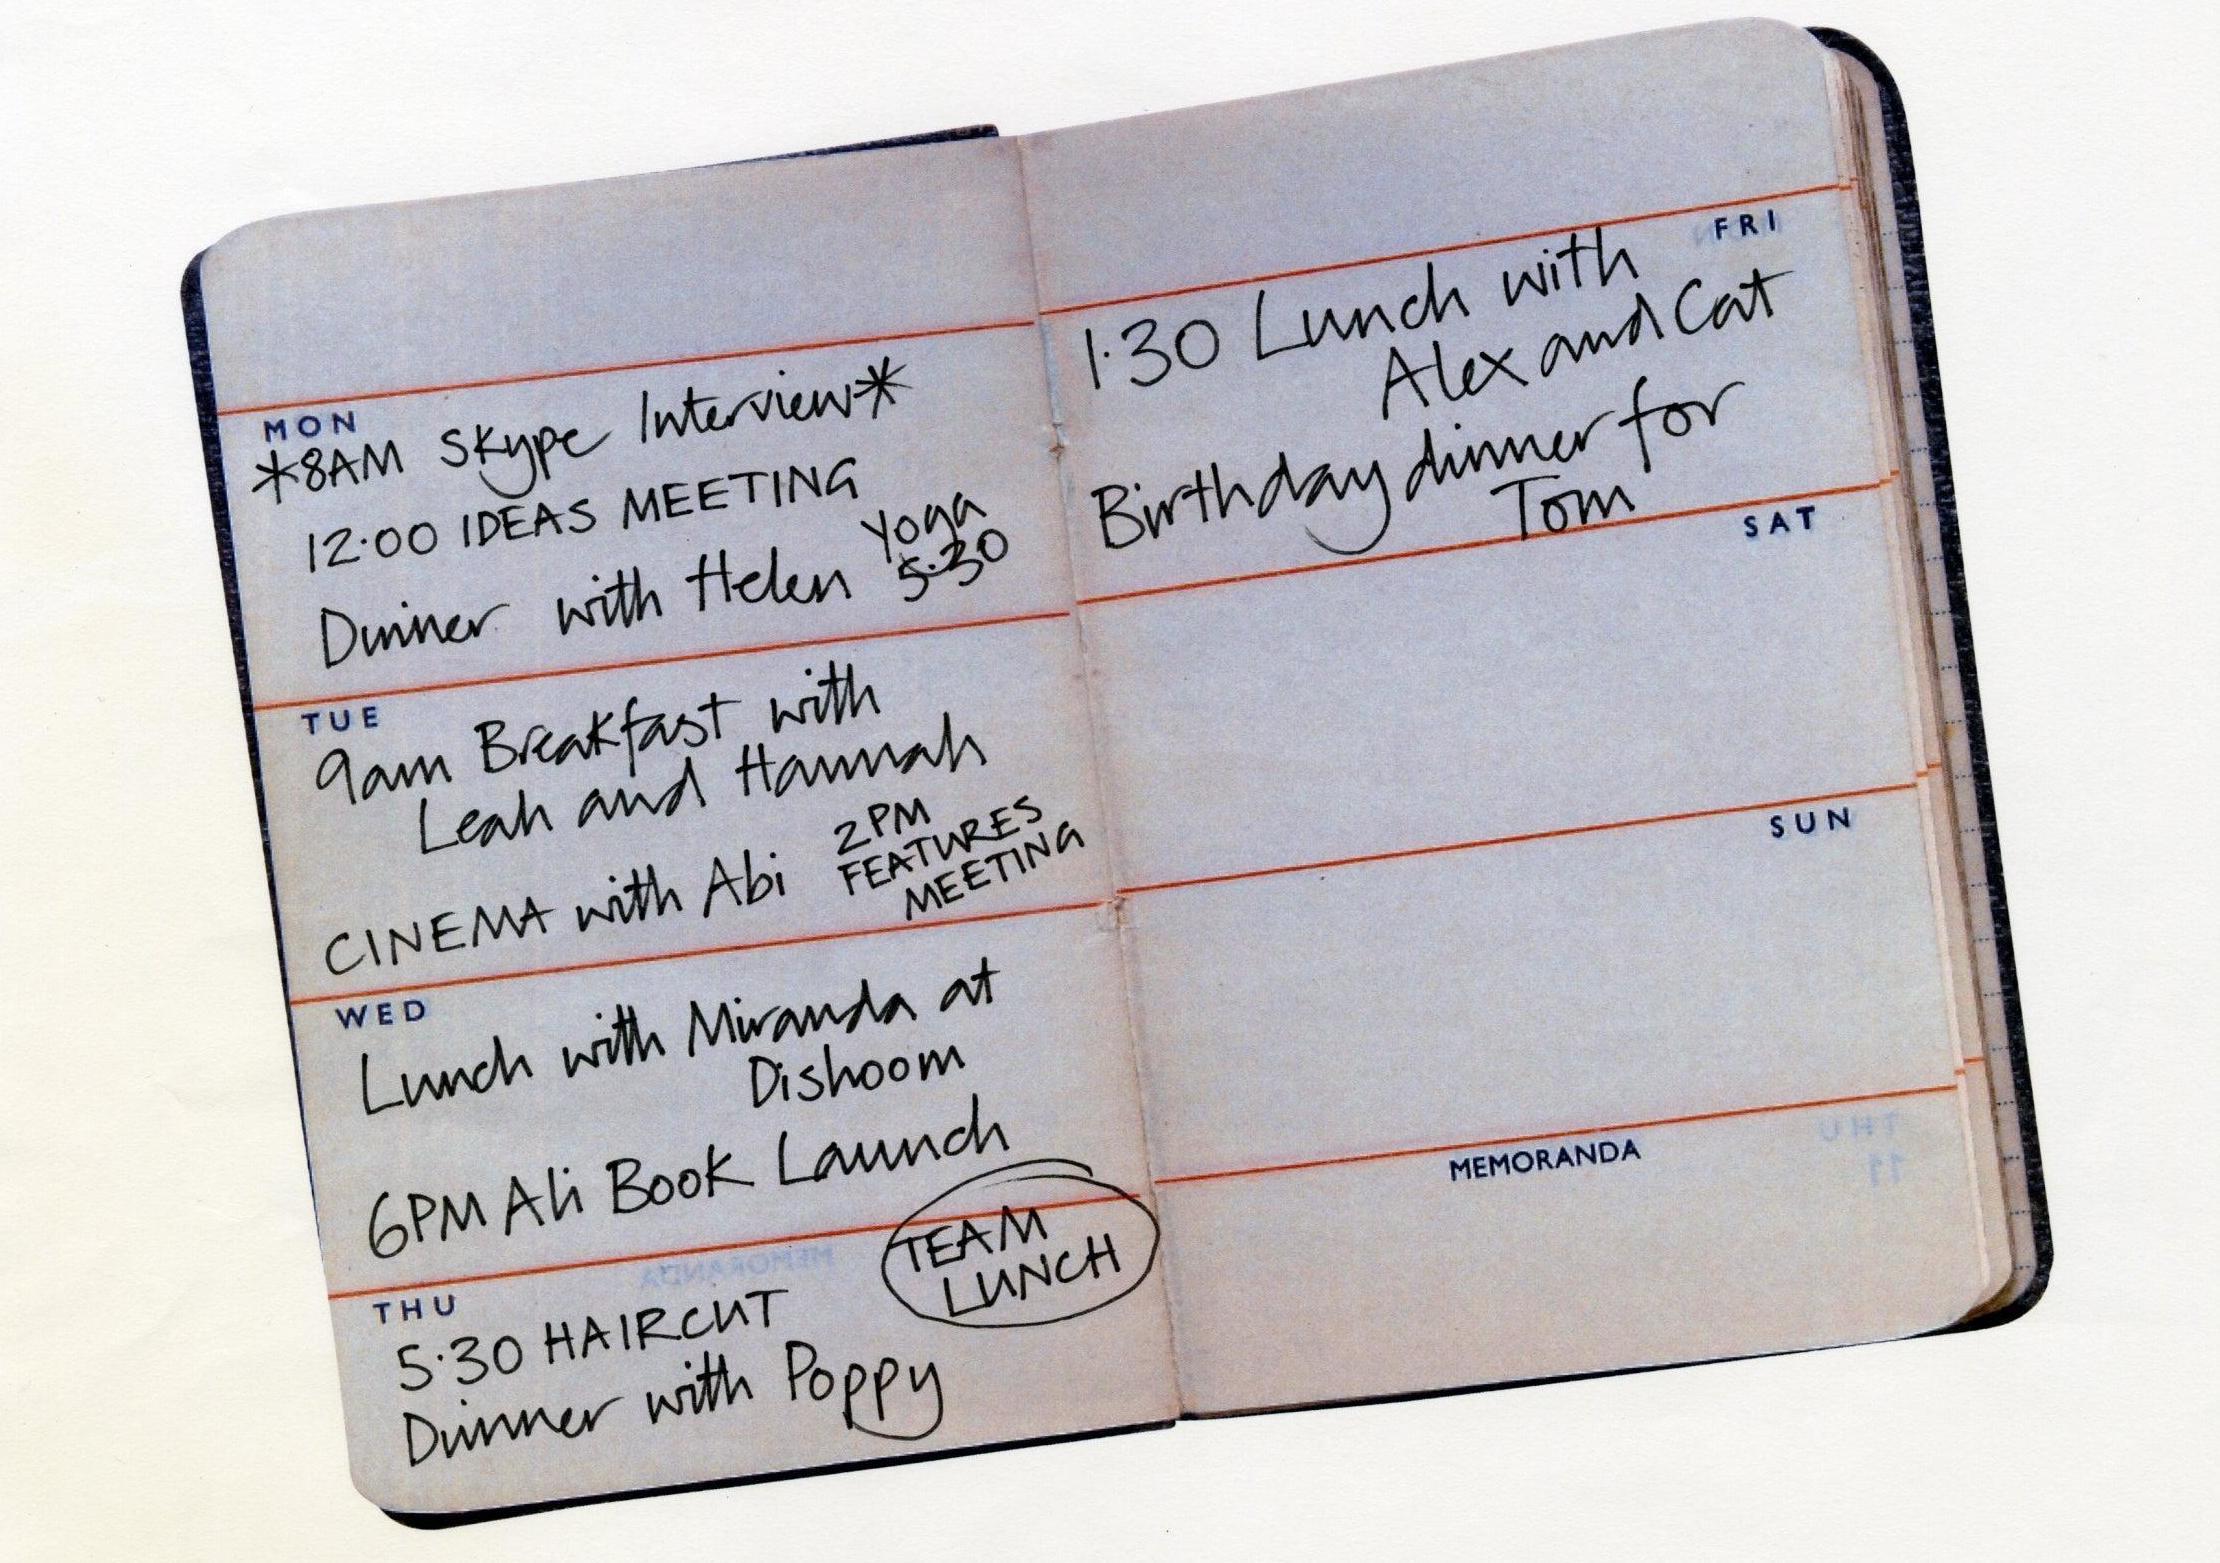 MON
*8AM Skype Interview*
12.00 IDEAS MEETING
Dinner with Helen
Yoga
5.30
TUE
9am Breakfast with
Leah and Hannah
CINEMA with Abi
2PM
FEATURES
MEETING
WED
Lunch with Miranda at
Dishoom
6PM Ali Book Launch
THU
TEAM
LUNCH
5.30 HAIRCUT
Dinner with Poppy
FRI
1.30 Lunch with
Alex and Cat
Birthday dinner for
Tom
SAT
SUN
MEMORANDA
MEMORANDA
THU
11